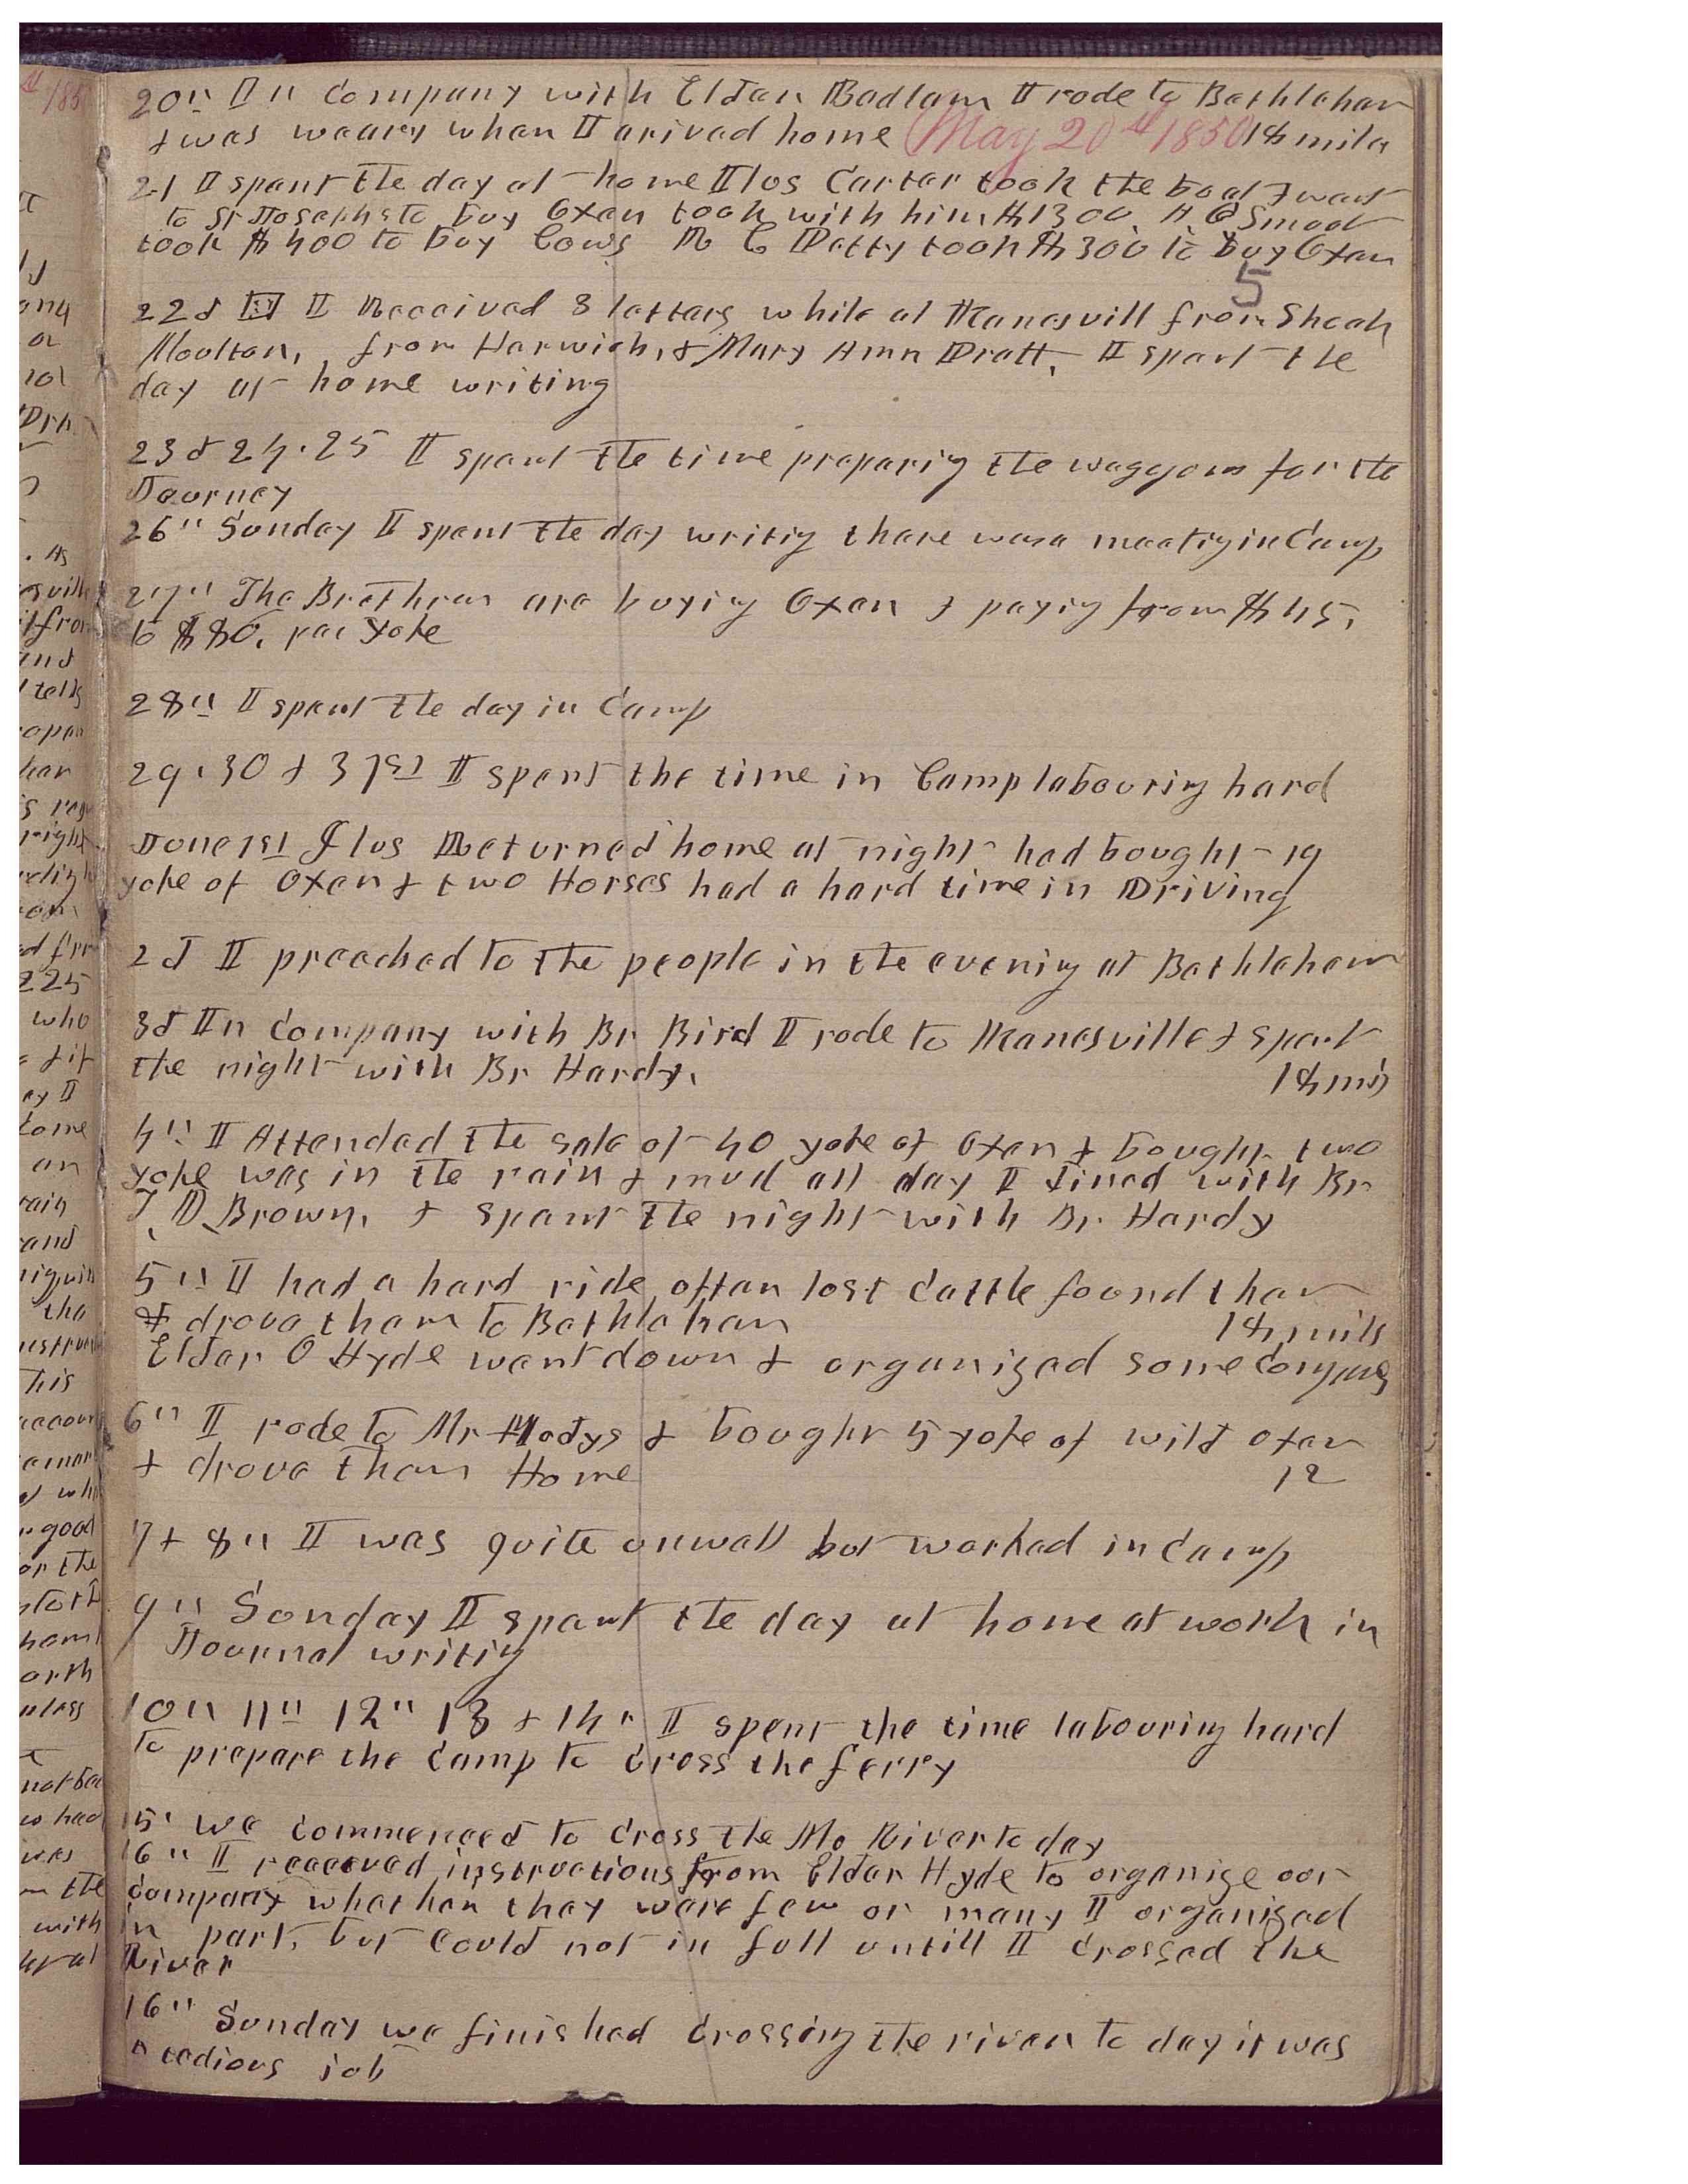 20" In company with Elder Badlam I rode to Bethlehem
& was weary when I arived home May 20th 1850 18 mile
21 I spent the day at home Ilos Carter took the boat & went
to St Josephs to buy Oxen took with him $1300 A O Smoot
took $400 to buy Cows R C Petty took $300 to buy Oxen
5
22d I Received 3 letters while at Kanesvill from Shoah
Moulton, from Harwich, & Mary Ann Pratt, I spent the
day at home writing
23d 24. 25 I spent the time preparig the waggons for the
Journey
26" Sunday I spent the day writig there was a meetig in Camp
27" The Brethren are buyig Oxen & payig from $45,
to $80. per Yoke
28" I spent the day in Camp
29. 30 & 31st I spent the time in Camp labouring hard
June 1st Ilus Returned home at night had bought 19
yoke of Oxen & two Horses had a hard time in Driving
2d I preached to the people in the evening at Bethlehem
3d In company with Br Bird I rode to Kanesville & spent
the night with Br Hardy. 18 mis
4" I Attended the sale of 40 yoke of Oxen & bought two
yoke was in the rain & mud all day I dined with Br
T. D Brown, & spent the night with Br. Hardy
5" I had a hard ride after lost Cattle found them
& drove them to Bethlehem 18 mils
Elder O Hyde went down & organized some Compns
6" I rode to Mr Hodys & bought 5 yoke of wild oxen
& drove them Home 12
7 & 8" I was quite unwell but worked in Camp
9" Sunday I spent the day at home at work in
Journal writig
10" 11" 12" 13 & 14" I spent the time labouring hard
to prepare the Camp to Cross the ferry
15' we Commenced to Cross the Mo River to day
16" I receeved instructions from Elder Hyde to organize our
Company whether they were few or many I organized
in part, but Could not in full untill I Crossed the
River
16" Sunday we finished Crossing the river to day it was
a tedious job